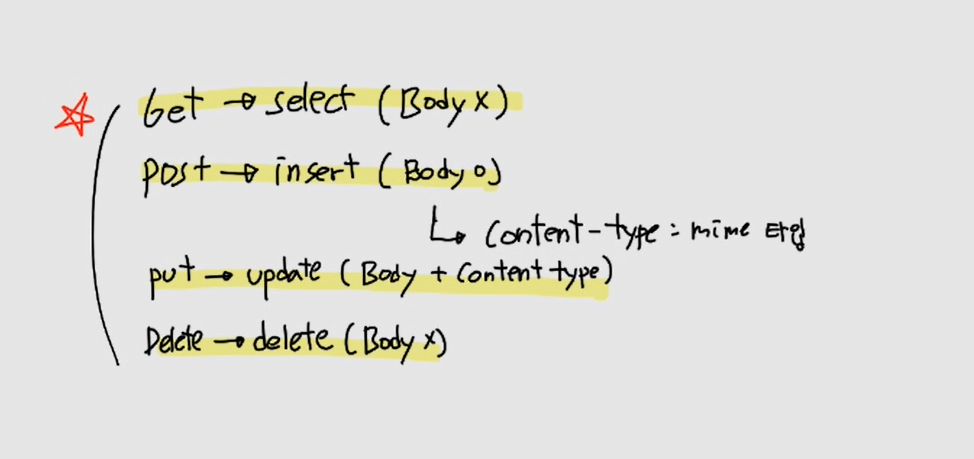 Get → select (Body X)
post → insert (Body O)
↳ Content-type : mime 타입
put → update (Body + Content type)
Delete → delete (Body X)